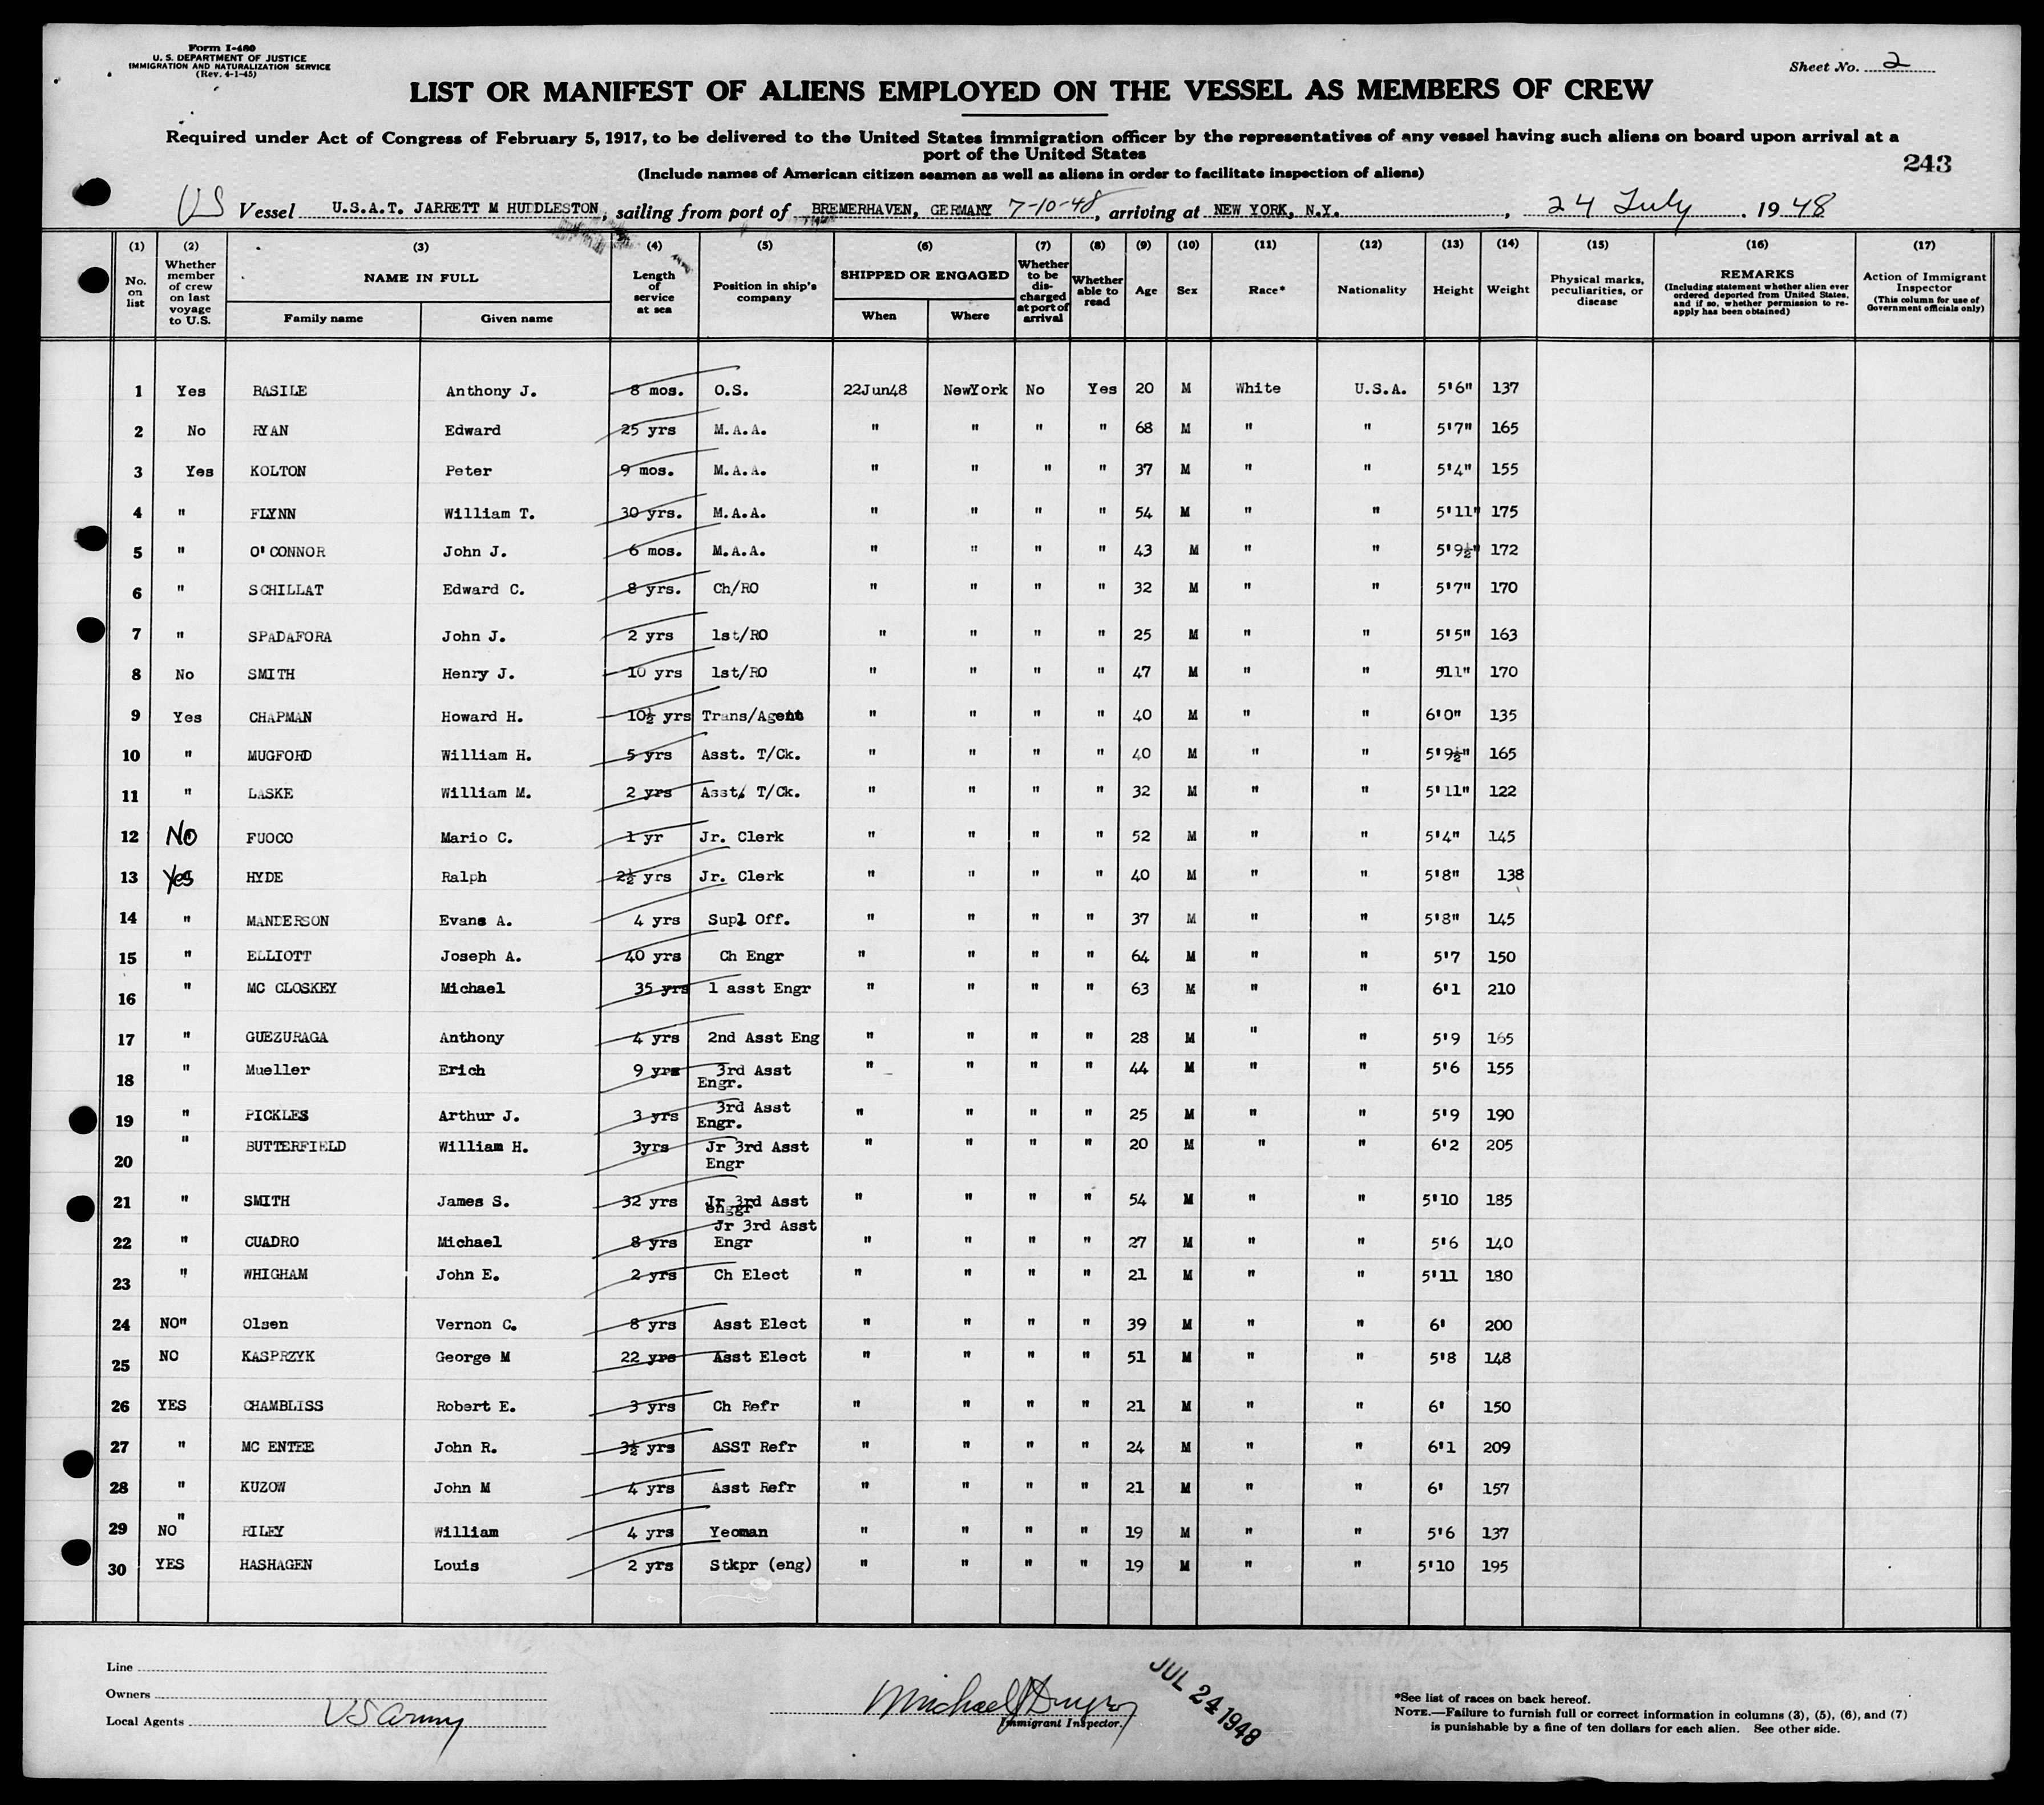 Form I-480
U. S. DEPARTMENT OF JUSTICE
IMMIGRATION AND NATURALIZATION SERVICE
(Rev. 4-1-45)
Sheet No. 2
LIST OR MANIFEST OF ALIENS EMPLOYED ON THE VESSEL AS MEMBERS OF CREW
Required under Act of Congress of February 5, 1917, to be delivered to the United States immigration officer by the representatives of any vessel having such aliens on board upon arrival at a
port of the United States
243
(Include names of American citizen seamen as well as aliens in order to facilitate inspection of aliens)
US Vessel U.S.A.T. JARRETT M HUDDLESTON, sailing from port of BREMERHAVEN, GERMANY 7-10-48, arriving at NEW YORK, N.Y., 24 July, 1948
(1) (2) (3) (4) (5) (6) (7) (8) (9) (10) (11) (12) (13) (14) (15) (16) (17)
No. on list
Whether member of crew on last voyage to U.S.
NAME IN FULL
Family name
Given name
Length of service at sea
Position in ship's company
SHIPPED OR ENGAGED
When
Where
Whether to be discharged at port of arrival
Whether able to read
Age
Sex
Race*
Nationality
Height
Weight
Physical marks, peculiarities, or disease
REMARKS
(Including statement whether alien ever ordered deported from United States, and if so, whether permission to reapply has been obtained)
Action of Immigrant Inspector
(This column for use of Government officials only)
1 Yes BASILE Anthony J. 8 mos. O.S. 22Jun48 NewYork No Yes 20 M White U.S.A. 5'6" 137
2 No RYAN Edward 25 yrs M.A.A. " " " " 68 M " " 5'7" 165
3 Yes KOLTON Peter 9 mos. M.A.A. " " " " 37 M " " 5'4" 155
4 " FLYNN William T. 30 yrs. M.A.A. " " " " 54 M " " 5'11" 175
5 " O'CONNOR John J. 6 mos. M.A.A. " " " " 43 M " " 5'9½" 172
6 " SCHILLAT Edward C. 8 yrs. Ch/RO " " " " 32 M " " 5'7" 170
7 " SPADAFORA John J. 2 yrs 1st/RO " " " " 25 M " " 5'5" 163
8 No SMITH Henry J. 10 yrs 1st/RO " " " " 47 M " " 511" 170
9 Yes CHAPMAN Howard H. 10½ yrs Trans/Agent " " " " 40 M " " 6'0" 135
10 " MUGFORD William H. 5 yrs Asst. T/Ck. " " " " 40 M " " 5'9½" 165
11 " LASKE William M. 2 yrs Asst. T/Ck. " " " " 32 M " " 5'11" 122
12 No FUOCO Mario C. 1 yr Jr. Clerk " " " " 52 M " " 5'4" 145
13 Yes HYDE Ralph 2½ yrs Jr. Clerk " " " " 40 M " " 5'8" 138
14 " MANDERSON Evans A. 4 yrs Supl Off. " " " " 37 M " " 5'8" 145
15 " ELLIOTT Joseph A. 40 yrs Ch Engr " " " " 64 M " " 5'7 150
16 " MC CLOSKEY Michael 35 yrs 1 asst Engr " " " " 63 M " " 6'1 210
17 " GUEZURAGA Anthony 4 yrs 2nd Asst Eng " " " " 28 M " " 5'9 165
18 " Mueller Erich 9 yrs 3rd Asst Engr. " " " " 44 M " " 5'6 155
19 " PICKLES Arthur J. 3 yrs 3rd Asst Engr. " " " " 25 M " " 5'9 190
20 " BUTTERFIELD William H. 3yrs Jr 3rd Asst Engr " " " " 20 M " " 6'2 205
21 " SMITH James S. 32 yrs Jr 3rd Asst enggr " " " " 54 M " " 5'10 185
22 CUADRO Michael 8 yrs Jr 3rd Asst Engr " " " " 27 M " " 5'6 140
23 " WHIGHAM John E. 2 yrs Ch Elect " " " " 21 M " " 5'11 180
24 NO" Olsen Vernon C. 8 yrs Asst Elect " " " " 39 M " " 6' 200
25 NO KASPRZYK George M 22 yrs Asst Elect " " " " 51 M " " 5'8 148
26 YES CHAMBLISS Robert E. 3 yrs Ch Refr " " " " 21 M " " 6' 150
27 " MC ENTEE John R. 3½ yrs ASST Refr " " " " 24 M " " 6'1 209
28 " KUZOW John M 4 yrs Asst Refr " " " " 21 M " " 6' 157
29 NO" RILEY William 4 yrs Yeoman " " " " 19 M " " 5'6 137
30 YES HASHAGEN Louis 2 yrs Stkpr (eng) " " " " 19 M " " 5'10 195
Line
Owners
Local Agents US Army
Michael J Dwyer
Immigrant Inspector.
JUL 24 1948
*See list of races on back hereof.
NOTE.—Failure to furnish full or correct information in columns (3), (5), (6), and (7)
is punishable by a fine of ten dollars for each alien. See other side.